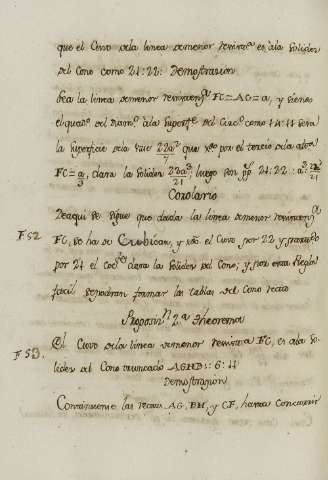 que el Cuvo dela linea de menor resistª es àla Solidez
del Cono como 21: 22: Demostrasion
Sea la linea de menor resistenªª FC=AG=a, y siendo
el quadº del diamrº àla superfª del Circº como 14:11 sera
la superficie dela vase 22a²/7 que xº por el tercio dela altª
FC=a/3, dara la Solidez 22a³/21; luego son 21: 22 : a³: 22a³/21
Corolario
F 52
De aqui se sigue que dada la linea de menor resistenªª
FC, se ha de Cubicar, y xº el Cuvo por 22 y partido
por 21 el cocᵗᵉ dara la Solidez del Cono; y por esta Regla
facil se podran formar las tablas del Cono recto
Proposiⁿ 2.ª Theorema
F 53.
El Cuvo dela linea de menor resistencia FC, es ala So-
lidez del Cono truncado AGHB:: 6: 11
Demostrasion
Continuense las rectas AG, BH, y CF, hasta Concurrir